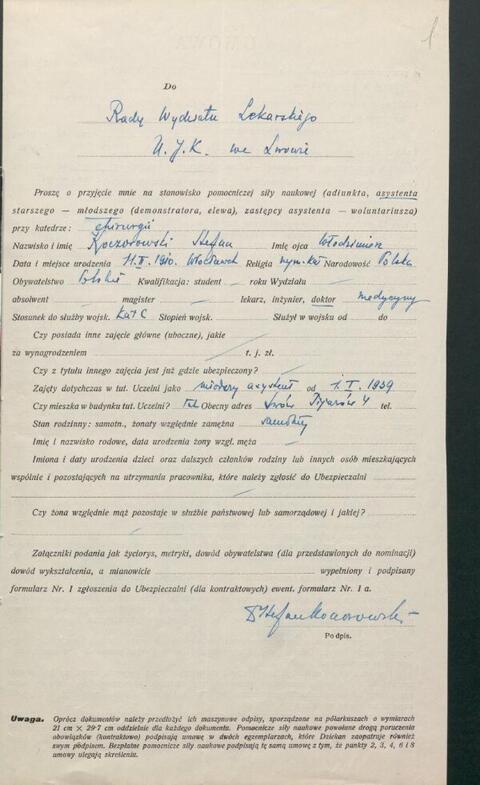 1
Do
Radę Wydziału Lekarskiego
U. J. K. we Lwowie
Proszę o przyjęcie mnie na stanowisko pomocniczej siły naukowej (adiunkta, asystenta
starszego — młodszego (demonstratora, elewa), zastępcy asystenta — woluntariusza)
przy katedrze: chirurgii
Nazwisko i imię Koczorowski Stefan Imię ojca Włodzimierz
Data i miejsce urodzenia 11.II.1910. Włocławek Religia rzym.kat Narodowość Polska
Obywatelstwo Polskie Kwalifikacja: student roku Wydziału
absolwent magister lekarz, inżynier, doktor medycyny
Stosunek do służby wojsk. Kat C Stopień wojsk. Służył w wojsku od do
Czy posiada inne zajęcie główne (uboczne), jakie
za wynagrodzeniem t. j. zł.
Czy z tytułu innego zajęcia jest już gdzie ubezpieczony?
Zajęty dotychczas w tut. Uczelni jako młodszy asystent od 1. I. 1939
Czy mieszka w budynku tut. Uczelni? Obecny adres Lwów Pijarów 4 tel.
Stan rodzinny: samotn., żonaty względnie zamężna samotny
Imię i nazwisko rodowe, data urodzenia żony wzgl. męża
Imiona i daty urodzenia dzieci oraz dalszych członków rodziny lub innych osób mieszkających
wspólnie i pozostających na utrzymaniu pracownika, które należy zgłosić do Ubezpieczalni
Czy żona względnie mąż pozostaje w służbie państwowej lub samorządowej i jakiej?
Załączniki podania jak życiorys, metryki, dowód obywatelstwa (dla przedstawionych do nominacji)
dowód wykształcenia, a mianowicie wypełniony i podpisany
formularz Nr. I zgłoszenia do Ubezpieczalni (dla kontraktowych) ewent. formularz Nr. I a.
Stefan Koczorowski
Podpis.
Uwaga. Oprócz dokumentów należy przedłożyć ich maszynowe odpisy, sporządzone na półarkuszach o wymiarach
21 cm × 29·7 cm oddzielnie dla każdego dokumentu. Pomocnicze siły naukowe powołane drogą poruczenia
obowiązków (kontraktowo) podpisują umowę w dwóch egzemplarzach, które Dziekan zaopatruje również
swym podpisem. Bezpłatne pomocnicze siły naukowe podpisują tę samą umowę z tym, że punkty 2, 3, 4, 6 i 8
umowy ulegają skreśleniu.